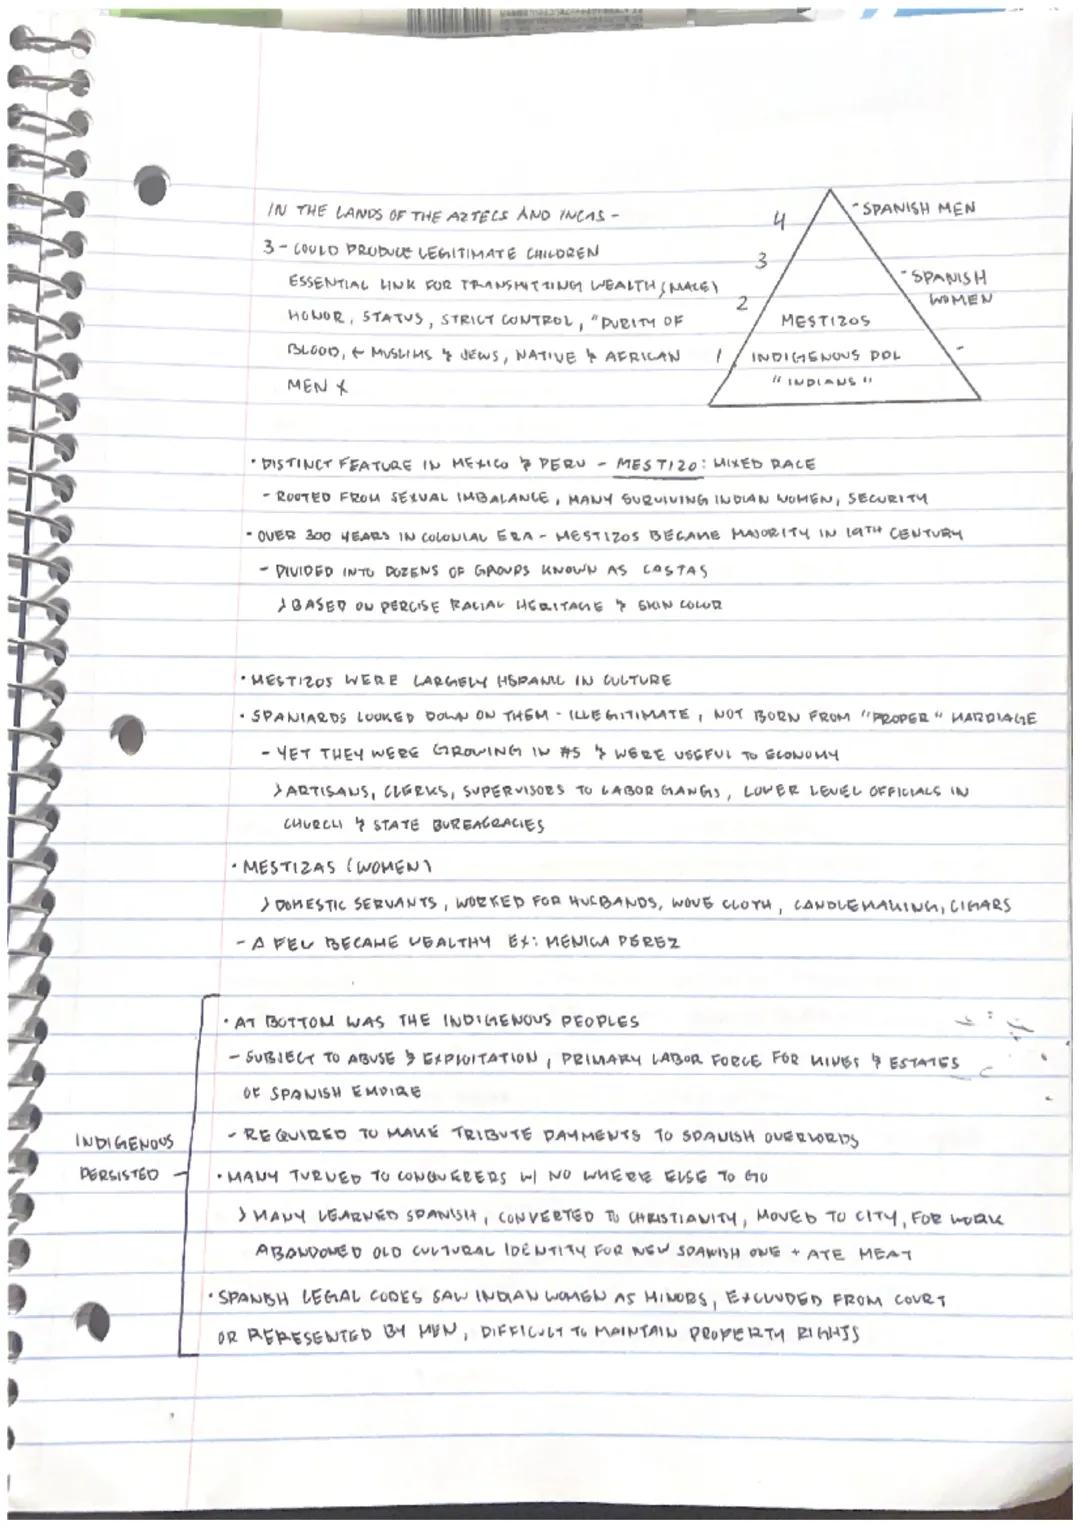 IN THE LANDS OF THE AZTECS AND INCAS -
3 - COULD PRODUCE LEGITIMATE CHILDREN
ESSENTIAL LINK FOR TRANSMITTING WEALTH (MALE)
HONOR, STATUS, STRICT CONTROL, "PURITY OF
BLOOD, ← MUSLIMS & JEWS, NATIVE & AFRICAN
MEN X
4
3
2
1
- SPANISH MEN
- SPANISH
WOMEN
MESTIZOS
INDIGENOUS POL
"INDIANS"
• DISTINCT FEATURE IN MEXICO & PERU - MESTIZO: MIXED RACE
- ROOTED FROM SEXUAL IMBALANCE, MANY SURVIVING INDIAN WOMEN, SECURITY
• OVER 300 YEARS IN COLONIAL ERA - MESTIZOS BECAME MAJORITY IN 19TH CENTURY
- DIVIDED INTO DOZENS OF GROUPS KNOWN AS CASTAS
> BASED ON PERCISE RACIAL HERITAGE & SKIN COLOR
• MESTIZOS WERE LARGELY HSPANIC IN CULTURE
• SPANIARDS LOOKED DOWN ON THEM - ILLEGITIMATE, NOT BORN FROM "PROPER" MARRIAGE
- YET THEY WERE GROWING IN #S & WERE USEFUL TO ECONOMY
> ARTISANS, CLERKS, SUPERVISORS TO LABOR GANGS, LOWER LEVEL OFFICIALS IN
CHURCH & STATE BUREACRACIES
• MESTIZAS (WOMEN)
> DOMESTIC SERVANTS, WORKED FOR HUSBANDS, WOVE CLOTH, CANDLEMAKING, CIGARS
- A FEW BECAME WEALTHY EX: MENICA PEREZ
• AT BOTTOM WAS THE INDIGENOUS PEOPLES
- SUBJECT TO ABUSE & EXPLOITATION, PRIMARY LABOR FORCE FOR MINES & ESTATES
OF SPANISH EMPIRE
- REQUIRED TO MAKE TRIBUTE PAYMENTS TO SPANISH OVERLORDS
INDIGENOUS
PERSISTED
• MANY TURNED TO CONQUERERS W/ NO WHERE ELSE TO GO
> MANY LEARNED SPANISH, CONVERTED TO CHRISTIANITY, MOVED TO CITY, FOR WORK
ABANDONED OLD CULTURAL IDENTITY FOR NEW SPANISH ONE + ATE MEAT
• SPANISH LEGAL CODES SAW INDIAN WOMEN AS MINORS, EXCLUDED FROM COURT
OR REPRESENTED BY MEN, DIFFICULT TO MAINTAIN PROPERTY RIGHTS